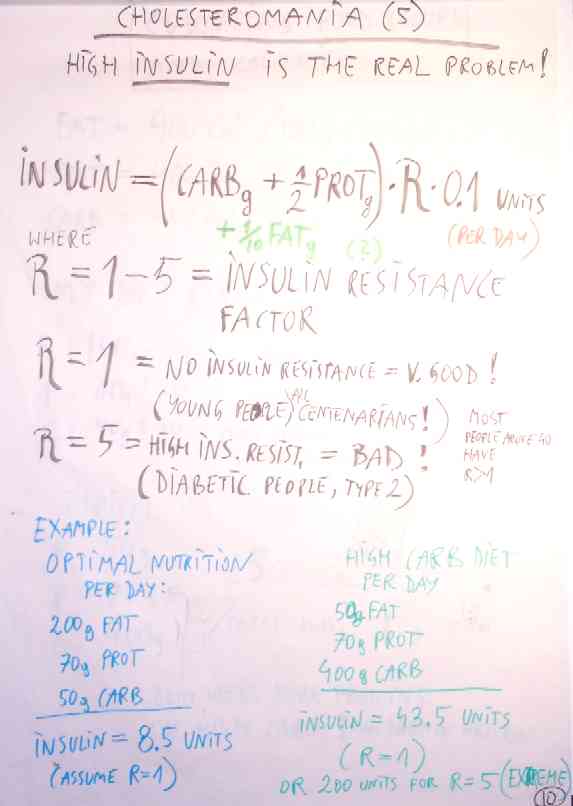 CHOLESTEROMANIA (5)
HIGH INSULIN IS THE REAL PROBLEM!
INSULIN = (CARBg + 1/2 PROTg) · R · 0.1 UNITS
+ 1/10 FATg (?) (PER DAY)
WHERE
R = 1 – 5 = INSULIN RESISTANCE
FACTOR
R = 1 = NO INSULIN RESISTANCE = V. GOOD!
(YOUNG PEOPLE, ALL CENTENARIANS!)
R = 5 = HIGH INS. RESIST. = BAD!
(DIABETIC PEOPLE, TYPE 2)
MOST
PEOPLE ABOVE 40
HAVE
R>1
EXAMPLE:
OPTIMAL NUTRITION
PER DAY:
200g FAT
70g PROT
50g CARB
INSULIN = 8.5 UNITS
(ASSUME R=1)
HIGH CARB DIET
PER DAY
50g FAT
70g PROT
400g CARB
INSULIN = 43.5 UNITS
(R=1)
OR 200 UNITS FOR R=5 (EXTREME)
10